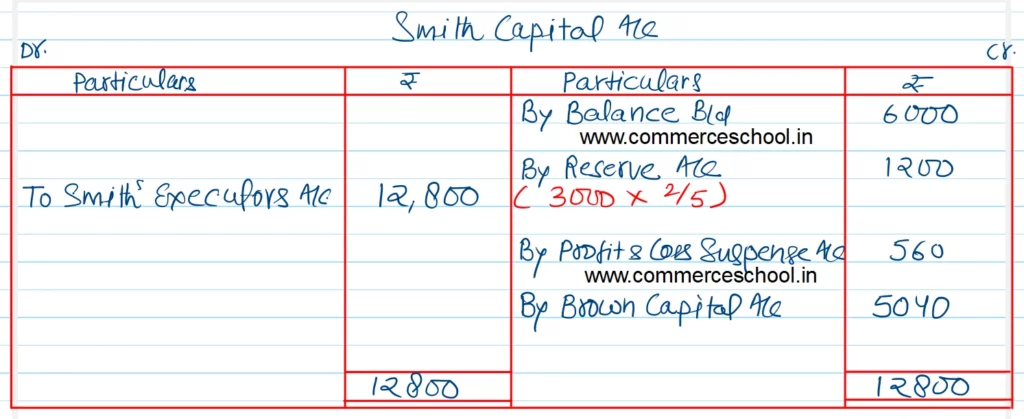 Smith Capital A/c
Dr.
Cr.
Particulars ₹ Particulars ₹
By Balance B/d 6000
www.commerceschool.in
By Reserve A/c 1200
To Smith's Executors A/c 12,800 (3000 × 2/5)
By Profit & Loss Suspense A/c 560
www.commerceschool.in
By Brown Capital A/c 5040
12800 12800